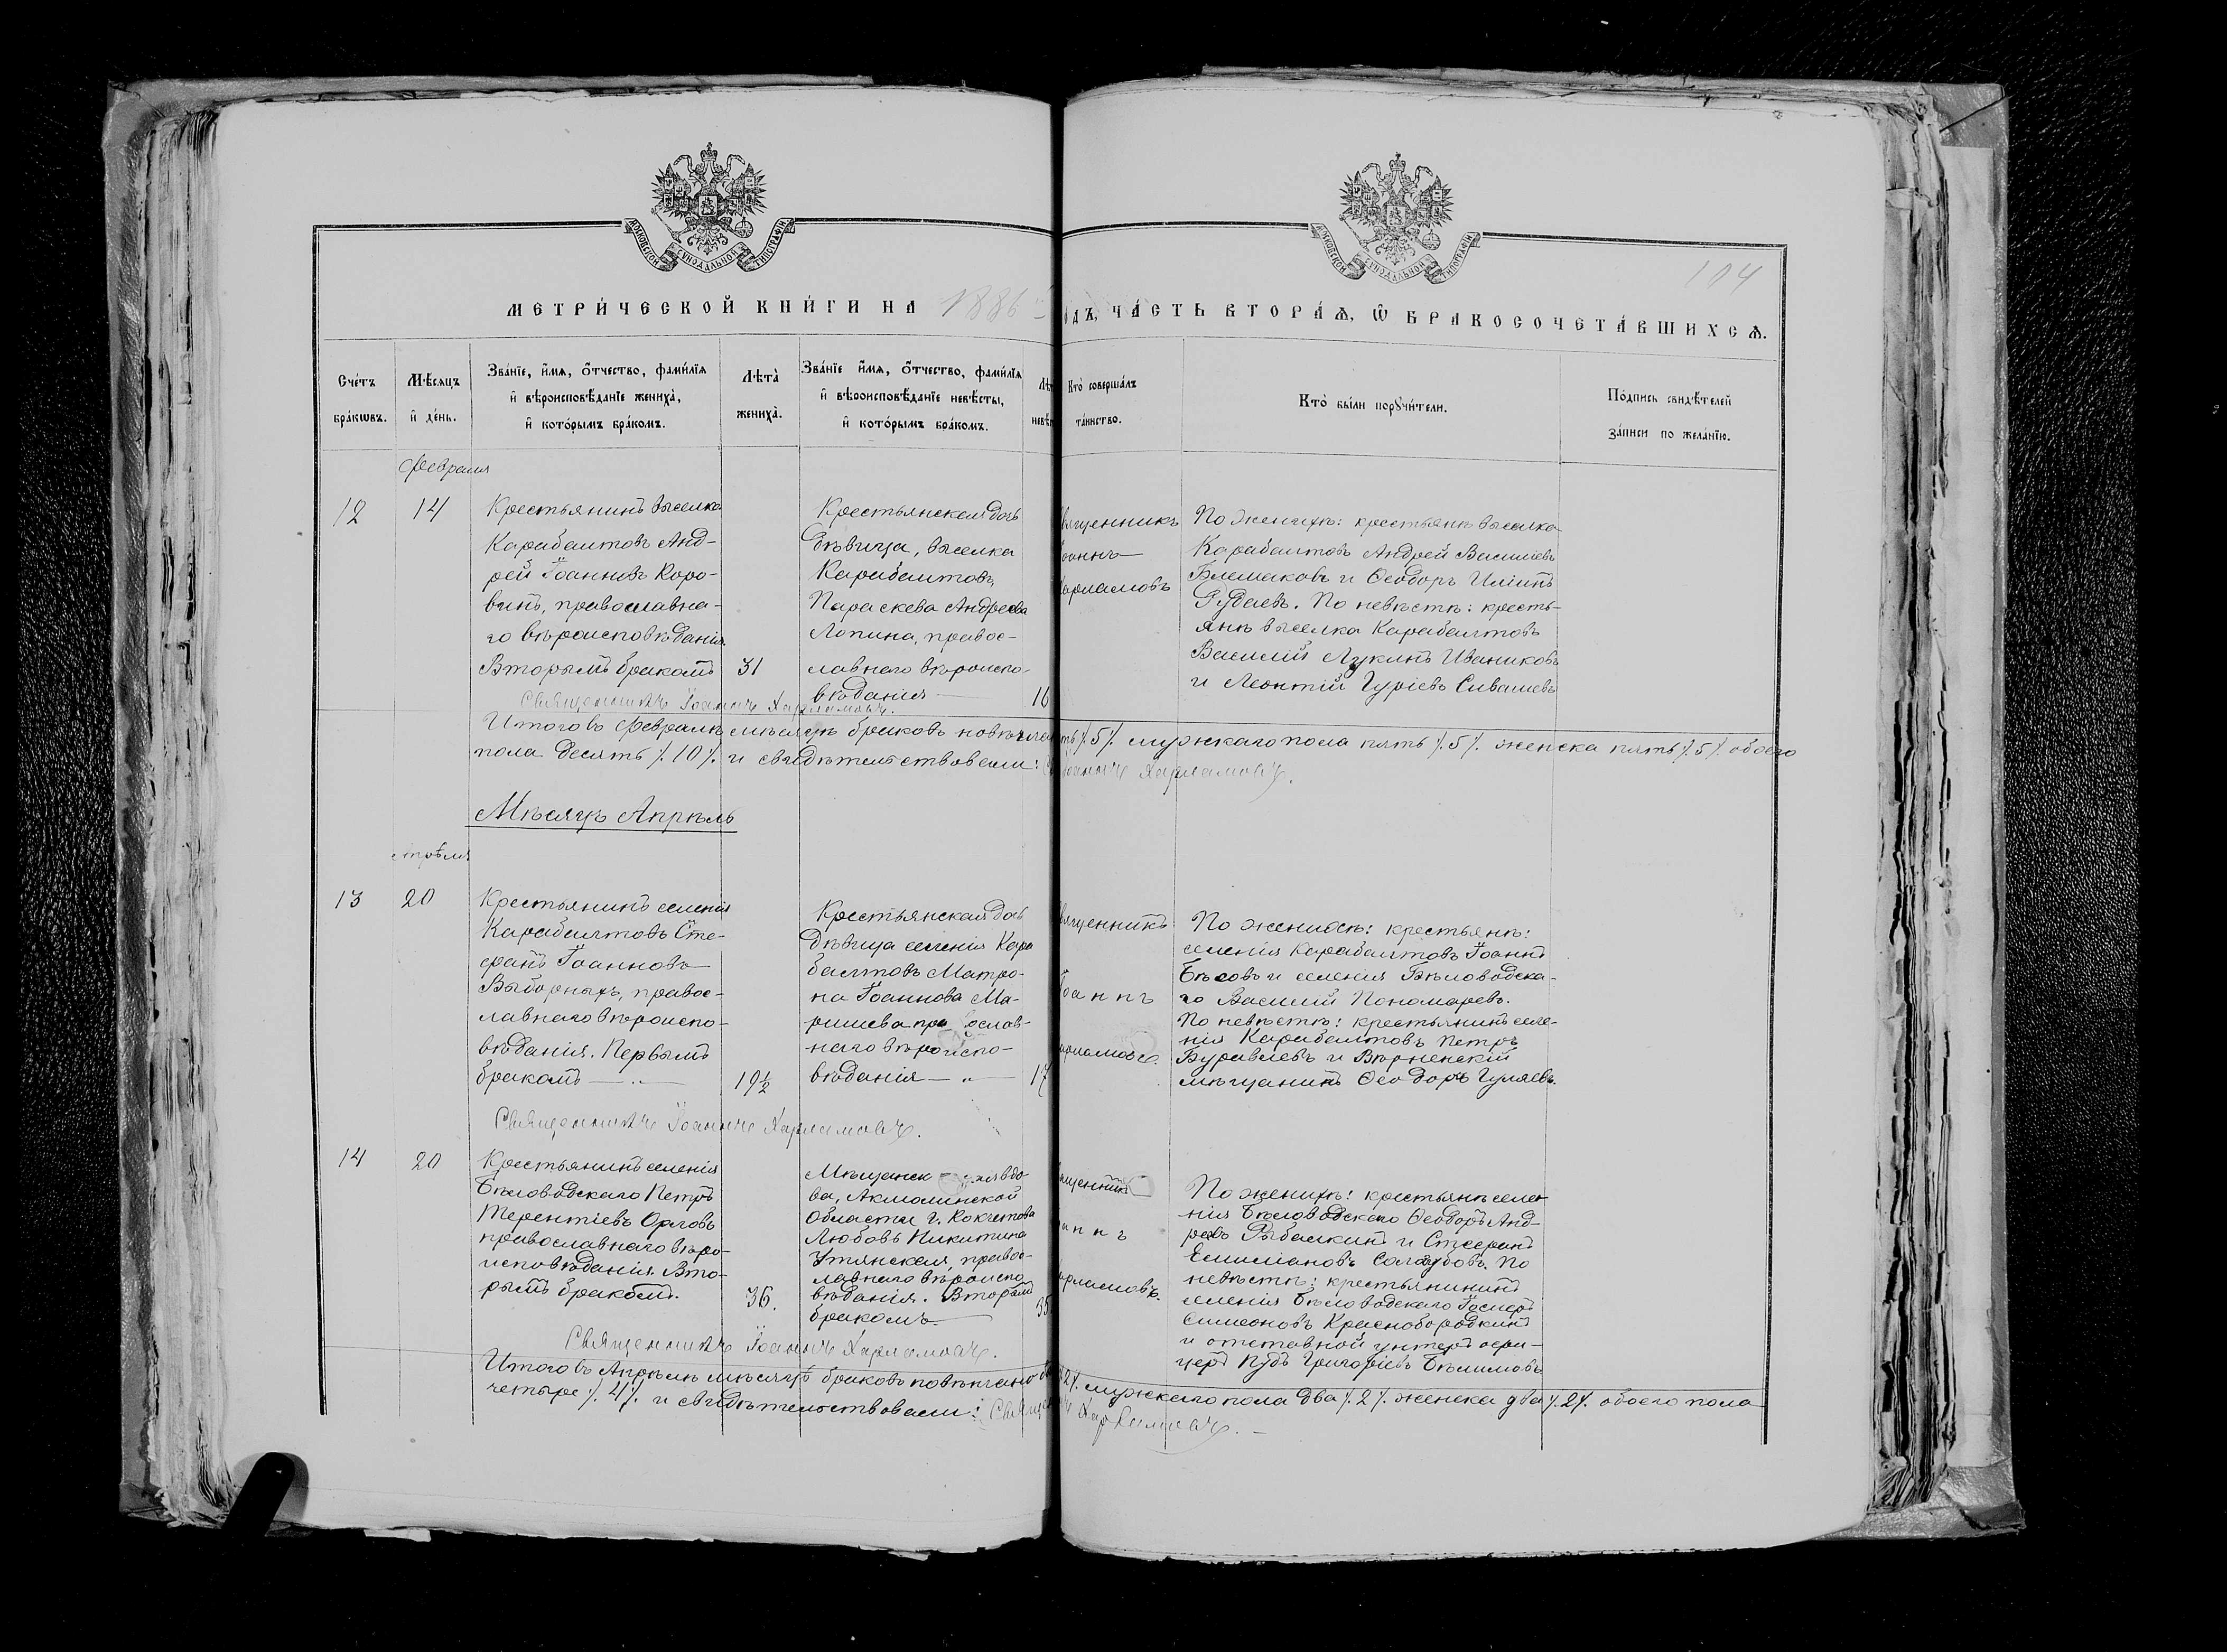 МОСКОВСКОЙ СѴНОДАЛЬНОЙ ТИПОГРАФІИ
МОСКОВСКОЙ СѴНОДАЛЬНОЙ ТИПОГРАФІИ
104
МЕТРИ́ЧЕСКОЙ КНИ́ГИ НА 1886
ОДЪ, ЧА́СТЬ ВТОРА́Ѧ, Ѿ БРАКОСОЧЕТА́ВШИХСѦ.
Сче́тъ бра́кѡвъ.
Мѣ́сѧцъ и҆ де́нь.
Зва́нїе, и҆́мѧ, ѻ҆́тчество, фами́лїѧ и҆ вѣроисповѣ́данїе жениха̀, и҆ кото́рымъ бра́комъ.
Лѣ́та̀ жениха̀.
Зва́нїе и҆́мѧ, ѻ҆́тчество, фами́лїѧ и҆ вѣроисповѣ́данїе невѣ́сты, и҆ кото́рымъ бра́комъ.
Лѣт невѣ
Кто̀ соверша́лъ та́инство.
Кто̀ бы́ли порꙋчи́тели.
По́дпись свидѣ́телей за́писи по жела́нїю.
Февраля
12
14
Крестьянинъ выселка
Карабалтовъ Анд-
рей Іоанновъ Коро-
винъ, православна-
го вѣроисповѣданія.
Вторымъ бракомъ
31
Крестьянская дочь
дѣвица, выселка
Карабалтовъ,
Параскева Андреева
Лопина, правос-
лавнаго вѣроиспо-
вѣданія
16
вященникъ
оаннъ
арламовъ
По женихѣ: крестьяне выселка
Карабалтовъ Андрей Василіевъ
и Ѳеодоръ Иліинъ
По невѣстѣ: кресть-
яне выселка Карабалтовъ
Василій Лукинъ Иваниковъ
и Леонтій Гуріевъ Сивашевъ
Священникъ Іоаннъ Харламовъ.
Итого въ Февралѣ мѣсяцѣ браковъ повѣнча ть /.5/. мужскаго пола пять /.5/. женска пять /.5/. обоего
пола десять /.10/. и свидѣтельствовали: Іоаннъ Харламовъ.
Мѣсяцъ Апрѣль
Апрѣля
13
20
Крестьянинъ селенія
Карабалтовъ Сте-
фанъ Іоанновъ
Выборныхъ, правос-
лавнаго вѣроиспо-
вѣданія. Первымъ
бракомъ — „ —
19½
Крестьянская дочь
дѣвица селенія Кара
балтовъ Матро-
на Іоаннова Ма-
ришева пра ослав-
наго вѣроиспо-
вѣданія — „ —
17
вященникъ
Іоаннъ
арламовъ.
По женихѣ: крестьяне:
селенія Карабалтовъ Іоаннъ
Бѣсовъ и селенія Бѣловодска-
го Василій Пономаревъ.
По невѣстѣ: крестьянинъ селе-
нія Карабалтовъ Петръ
Буравлевъ и Вѣрненскій
мѣщанинъ Ѳеодоръ Гуляевъ.
Священникъ Іоаннъ Харламовъ.
14
20
Крестьянинъ селенія
Бѣловодскаго Петръ
Терентіевъ Орловъ
православнаго вѣро-
исповѣданія. Вто-
рымъ бракомъ.
36.
Мѣщанск ая вдо-
ва, Акмолинской
области г. Кокчетова
Любовь Никитина
Утянская, правос-
лавнаго вѣроиспо
вѣданія. Вторымъ
бракомъ
35
щенникъ
аннъ
арламовъ.
По женихѣ: крестьяне селе
нія Бѣловодскаго Ѳеодоръ Анд-
реевъ Рыбалкинъ и Стефанъ
Емиліановъ Солодубовъ. По
невѣстѣ: крестьянинъ
селенія Бѣловодскаго Іосифъ
Симеоновъ Краснобородкинъ
и отставной унтеръ офи-
церъ Григоріевъ Бѣлимовъ
Священникъ Іоаннъ Харламовъ.
Итого въ Апрѣлѣ мѣсяцѣ браковъ повѣнчано 2/. мужскаго пола два /.2/. женска два /.2/. обоего пола
четыре /.4/. и свидѣтельствовали: Священ Харламовъ.